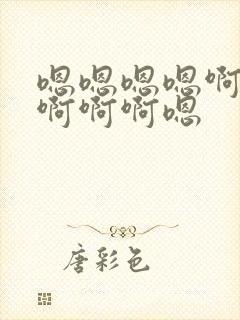 嗯嗯嗯嗯啊
啊啊啊嗯
唐彩色